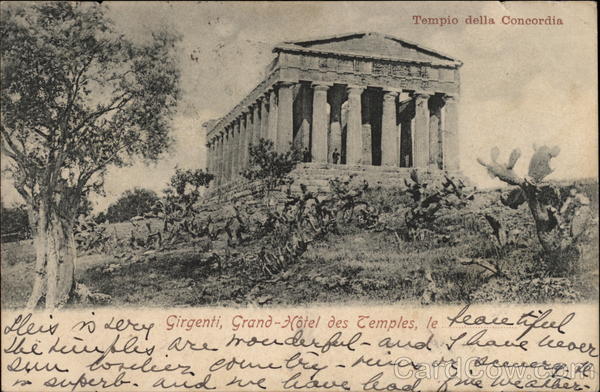 Tempio della Concordia
Girgenti, Grand-Hôtel des Temples, le
This is very beautiful
The temples are wonderful - and I have never
seen lovelier country - views or scenery. It
is superb - and we have had fine weather
CardCow.com